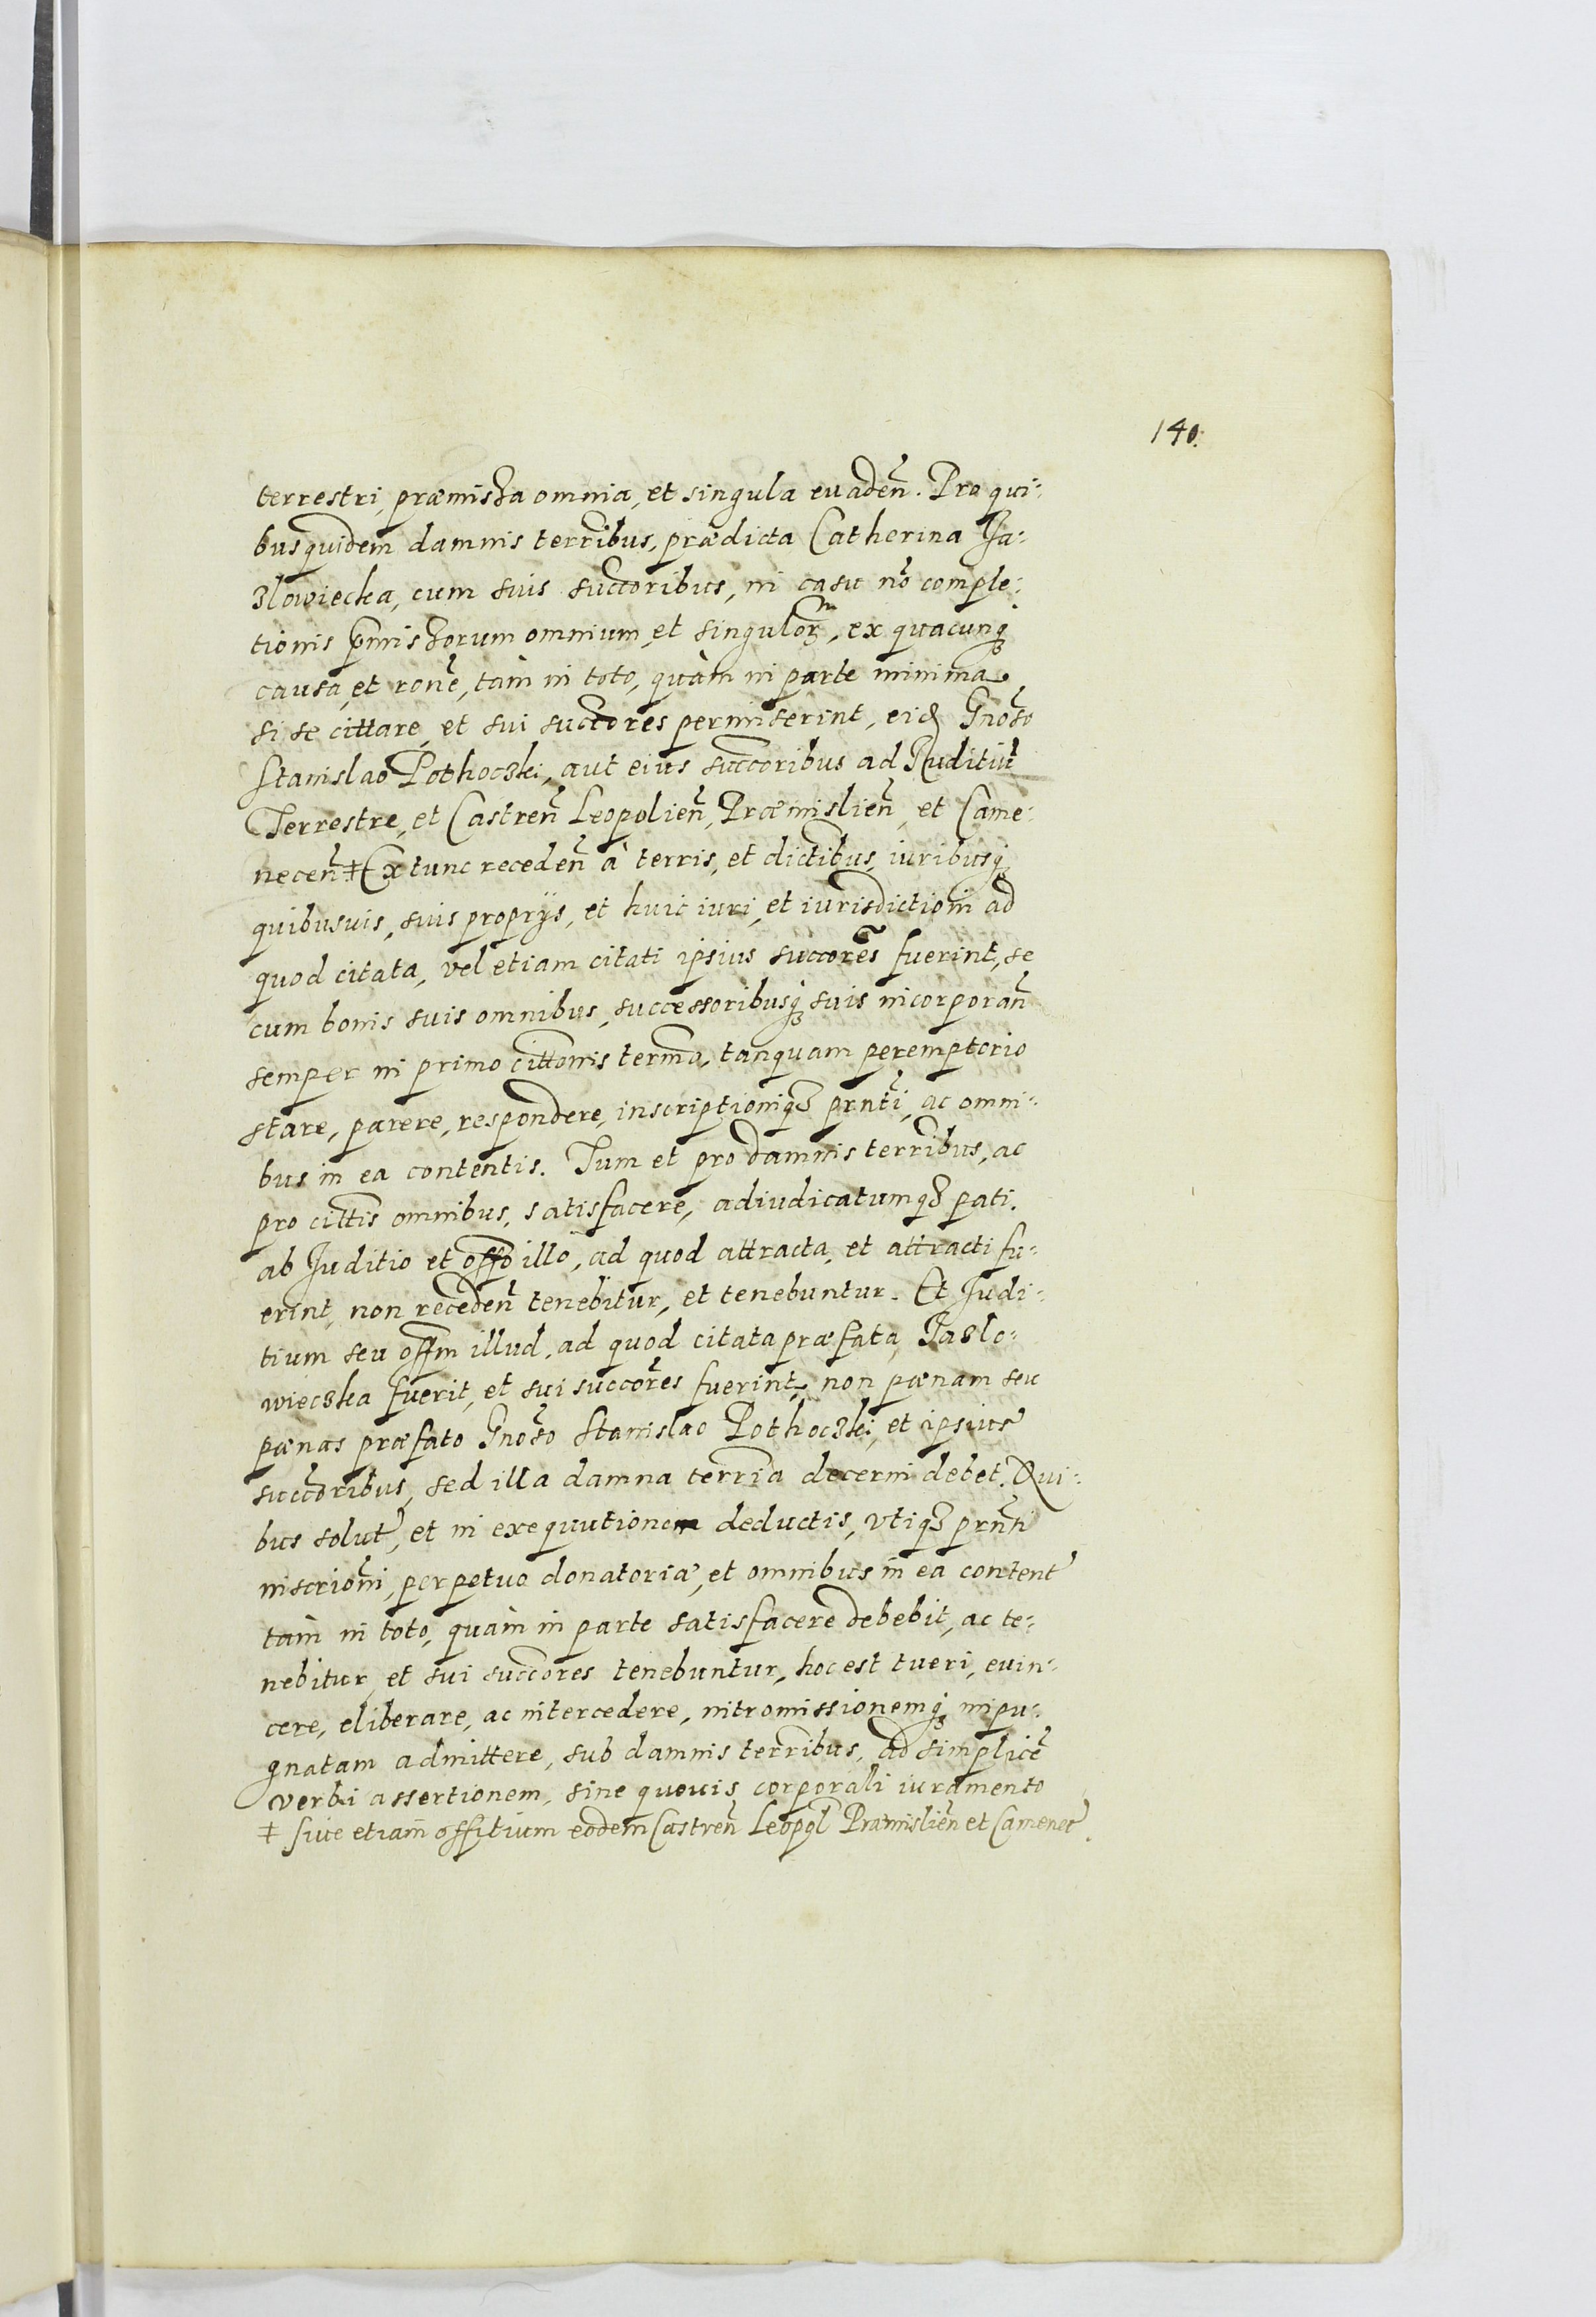 140.
terrestri, præmissa omnia, et singula euaden̄. Pro qui-
bus quidem damnis terribus, prædicta Catherina Ja-
zlowiecka, cum suis succoribus, in casu nō comple-
tionis p̄missorum omnium, et singulor̄m, ex quacunq̃
causa, et ronē, tàm in toto, quàm in parte minima
si se cittare, et sui succores permiserint, eid Gnoso
Stanislao Pothoczki, aut eius succoribus ad Juditiū
Terrestre, et Castren̄ Leopolien̄, Præmislien̄, et Came-
necen̄ ‡ Ex tunc receden̄ à terris, et dictibus, iuribusq̃
quibusuis, suis proprijs, et huic iuri, et iurisdictioni ad
quod citata, vel etiam citati ipsius succorēs fuerint, se
cum bonis suis omnibus, successoribusq̃ suis incorporan̄
semper in primo cittonis termo, tanquam peremptorio
stare, parere, respondere, inscriptioniq3 prnti, ac omni-
bus in ea contentis. Tum et pro damnis terribus, ac
pro cittis omnibus, satisfacere, adiudicatumq3 pati.
ab Juditio et offo illo, ad quod attracta, et attracti fu-
erint, non receden̄ tenebitur, et tenebuntur. Et Judi-
tium seu offm illud, ad quod citata præfata, Jazlo-
wieczka fuerit, et sui succores fuerint, non pænam seu
pænas præfato Gnoso Stanislao Pothoczki, et ipsius
succoribus, sed illa damna terria decerni debet. Qui-
bus solut, et in exequutionem deductis, vtiq3 prnti
inscrioni, perpetuo donatoriæ, et omnibus in ea content
tàm in toto, quàm in parte satisfacere debebit, ac te-
nebitur, et sui succores tenebuntur, hoc est tueri, euin-
cere, eliberare, ac intercedere, intromissionemq̃ inpu-
gnatam admittere, sub damnis terribus, ad simplicē
verbi assertionem, sine quouis corporali iuramento
‡ siue etiam offitium eodem Castren̄ Leopol Præmislien̄ et Camenec.